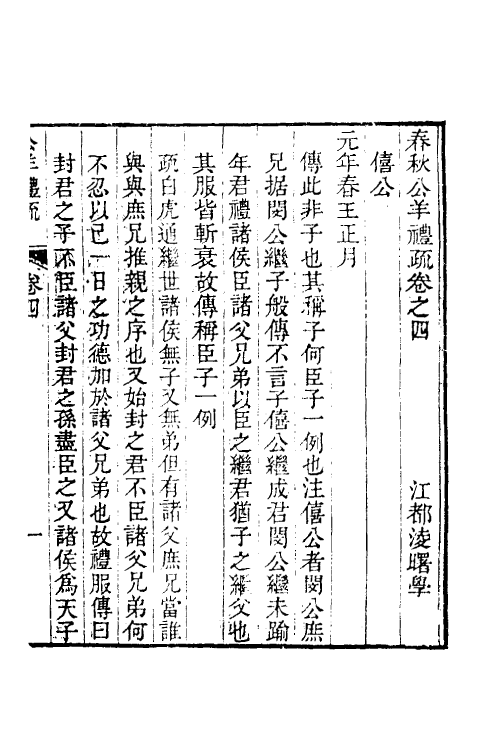 春秋公羊禮疏卷之四 江都淩曙學
僖公
元年春王正月
傳此非子也其稱子何臣子一例也注僖公者閔公庶
兄據閔公繼子般傳不言子僖公繼成君閔公繼未踰
年君禮諸侯臣諸父兄弟以臣之繼君猶子之繼父也
其服皆斬衰故傳稱臣子一例
疏白虎通繼世諸侯無子又無弟但有諸父庶兄當誰
與與庶兄推親之序也又始封之君不臣諸父兄弟何
不忍以己一日之功德加於諸父兄弟也故禮服傳曰
封君之子不臣諸父封君之孫盡臣之又諸侯爲天子
公羊禮疏 卷四 一